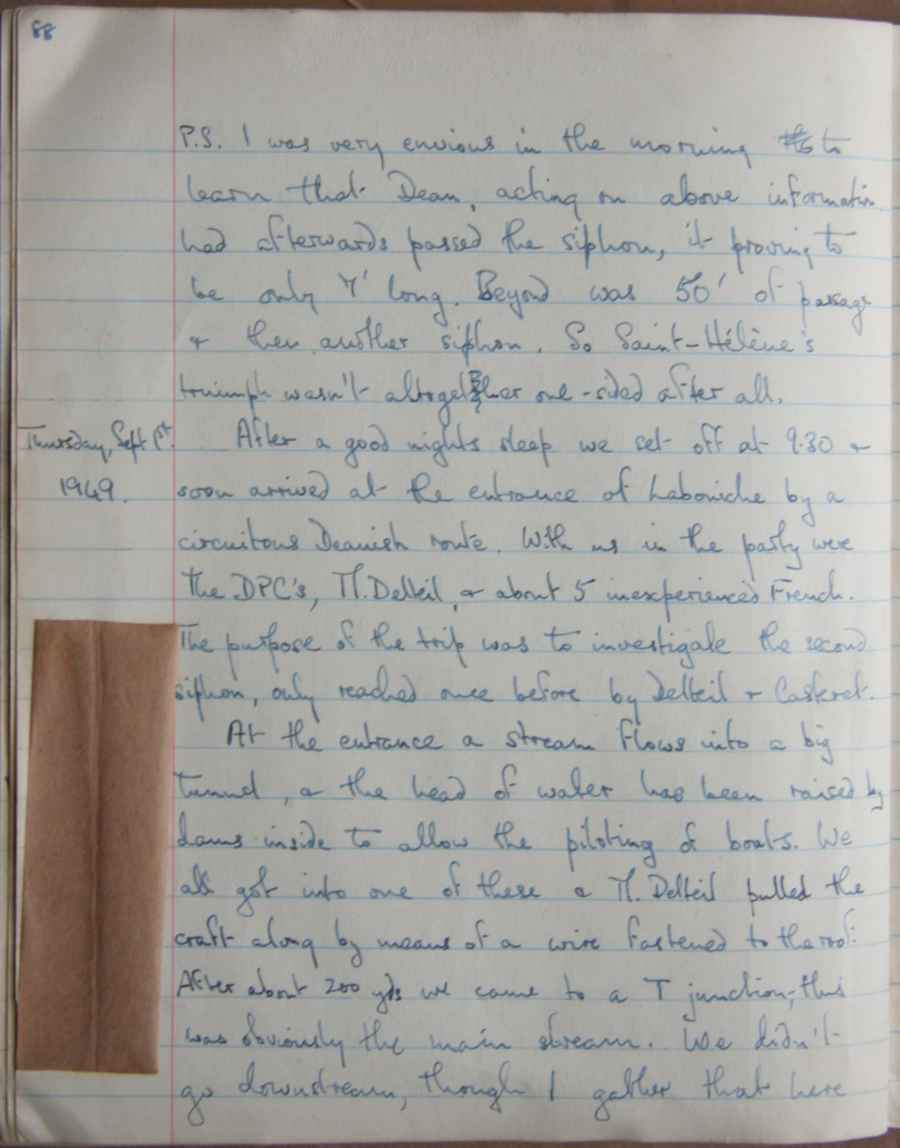 88
P.S. I was very envious in the morning to
learn that Dean, acting on above information
had afterwards passed the siphon, it proving to
be only 7' long. Beyond was 50' of passage
& then another siphon. So Saint-Hélène's
triumph wasn't altogether one-sided after all.
Thursday, Sept 1st.
1949.
After a good nights sleep we set off at 9.30 &
soon arrived at the entrance of Labouiche by a
circuitous Deanish route. With us in the party were
the DPC's, M. Delteil, & about 5 inexperienced French.
The purpose of the trip was to investigate the second
siphon, only reached once before by Delteil & Casteret.
At the entrance a stream flows into a big
tunnel, & the head of water has been raised by
dams inside to allow the piloting of boats. We
all got into one of these & M. Delteil pulled the
craft along by means of a wire fastened to the roof.
After about 200 yds we came to a T junction; this
was obviously the main stream. We didn't
go downstream, though I gather that here